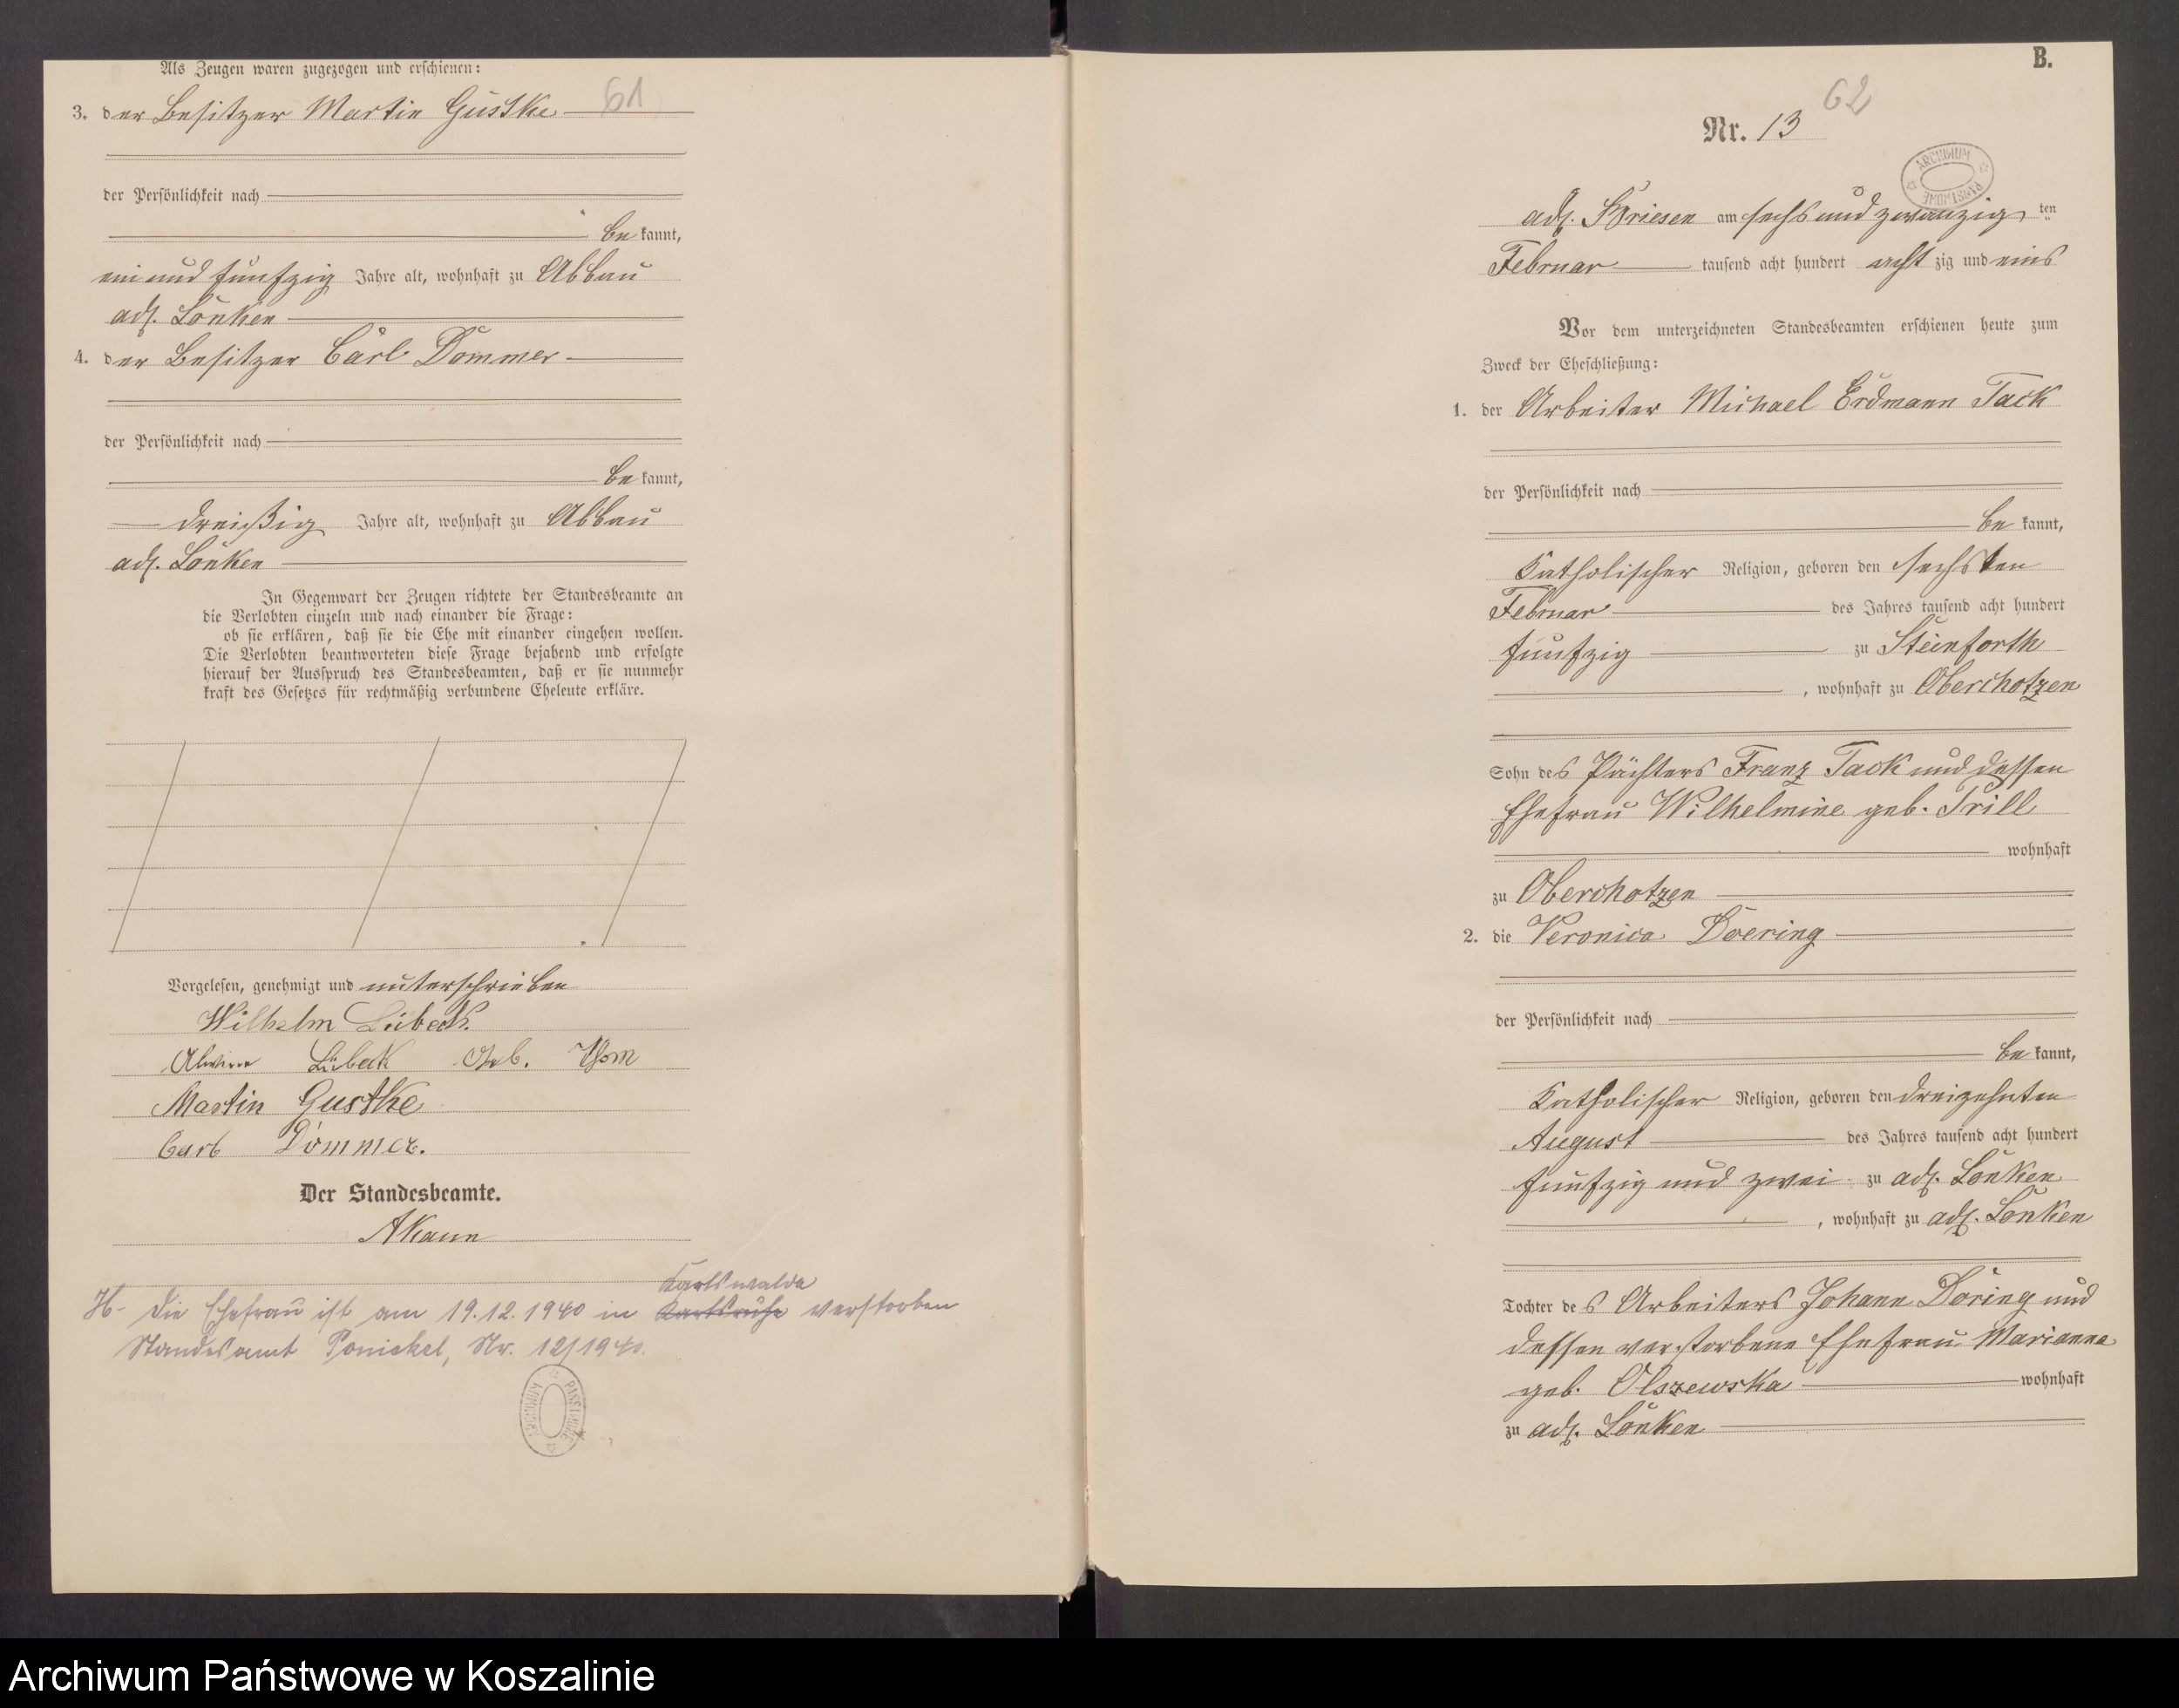 Als Zeugen waren zugezogen und erschienen:
61
3. der Besitzer Martin Gustke
der Persönlichkeit nach
be kannt,
ein und fünfzig Jahre alt, wohnhaft zu Abbau
adl. Lonken
4. der Besitzer Carl Dommer
der Persönlichkeit nach
be kannt,
dreißig Jahre alt, wohnhaft zu Abbau
adl. Lonken
In Gegenwart der Zeugen richtete der Standesbeamte an
die Verlobten einzeln und nach einander die Frage:
ob sie erklären, daß sie die Ehe mit einander eingehen wollen.
Die Verlobten beantworteten diese Frage bejahend und erfolgte
hierauf der Ausspruch des Standesbeamten, daß er sie nunmehr
kraft des Gesetzes für rechtmäßig verbundene Eheleute erkläre.
Vorgelesen, genehmigt und unterschrieben
Wilhelm Lübeck.
Lübeck Geb. Thom
Martin Gustke
Carl Dommer.
Der Standesbeamte.
Karlswalde
H. Die Ehefrau ist am 19.12.1940 in Karlsruhe verstorben
Standesamt Ponickel, Nr. 12/1940.
ARCHIWUM PAŃSTWOWE
B.
62
Nr. 13
ARCHIWUM PAŃSTWOWE
adl. Briesen am sechs und zwanzig ten
Februar tausend acht hundert acht zig und eins
Vor dem unterzeichneten Standesbeamten erschienen heute zum
Zweck der Eheschließung:
1. der Arbeiter Michael Erdmann Tack
der Persönlichkeit nach
be kannt,
Katholischer Religion, geboren den sechsten
Februar des Jahres tausend acht hundert
fünfzig zu Steinforth
, wohnhaft zu Oberchotzen
Sohn des Pächters Franz Tack und dessen
Ehefrau Wilhelmine geb. Prill
wohnhaft
zu Oberchotzen
2. die Veronica Doering
der Persönlichkeit nach
be kannt,
Katholischer Religion, geboren den dreizehnten
August des Jahres tausend acht hundert
fünfzig und zwei zu adl. Lonken
, wohnhaft zu adl. Lonken
Tochter des Arbeiters Johann Döring und
dessen verstorbene Ehefrau Marianna
geb. Olszewska wohnhaft
zu adl. Lonken
Archiwum Państwowe w Koszalinie